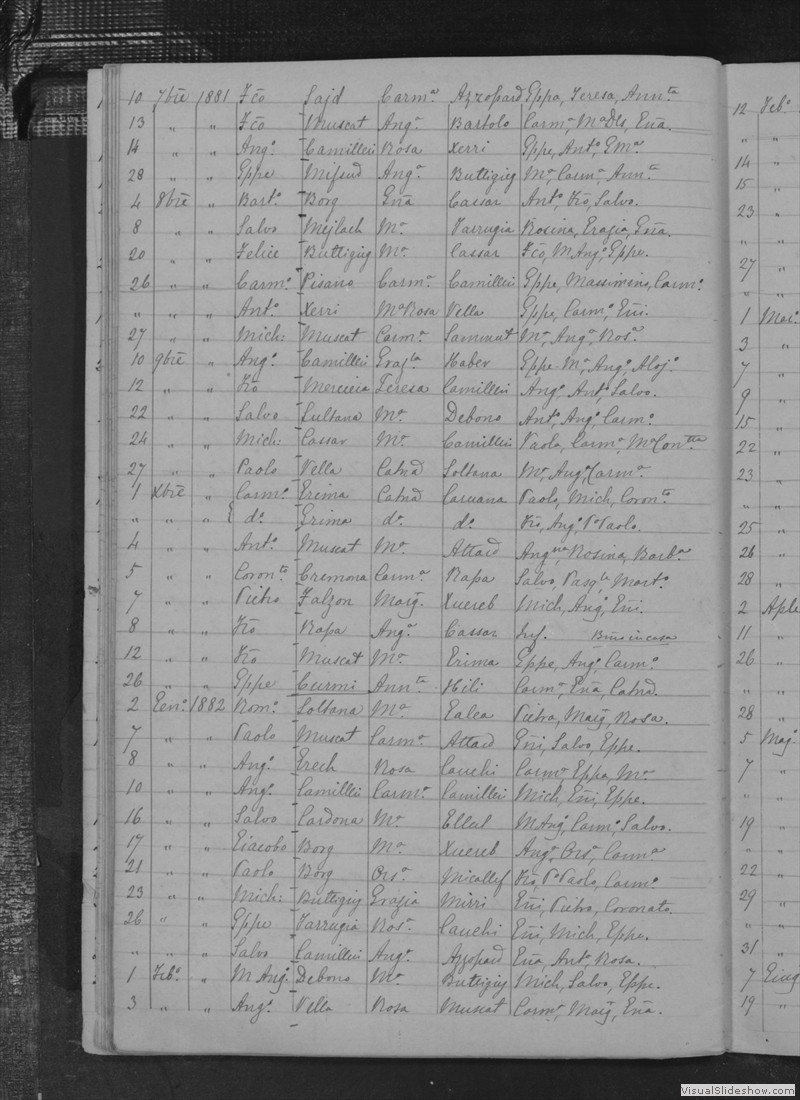 10 7bre 1881 Fco Sajd Carma Azzopard Eppa, Teresa, Annta
13 " " Fco Muscat Anga Bartolo Carma, Ma Dls, Ena.
14 " " Ango Camilleri Rosa Xerri Eppe, Anto, Ema
28 " " Eppe Mifsud Anga Buttigieg Ma, Carma, Annta
4 8bre " Barto Borg Ena Cassar Anto, Fco, Salvo.
8 " " Salvo Mejlach Ma Farrugia Rosina, Grazia, Ena.
20 " " Felice Buttigieg Ma Cassar Fco, M. Ango Eppe.
26 " " Carmo Pisano Carma Camilleri Eppe, Massimino, Carmo
" " " Anto Xerri Ma Rosa Vella Eppe, Carmo, Eni.
27 " " Mich: Muscat Carma Sammut Ma, Anga, Rosa
10 9bre " Ango Camilleri Grazla Haber Eppe Ma, Ango, Alojo
12 " " Fco Mercieca Teresa Camilleri Ango, Anto, Salvo.
22 " " Salvo Sultana Ma Debono Anto, Ango, Carmo
24 " " Mich: Cassar Ma Camilleri Paola, Carma, Ma Contta
27 " " Paolo Vella Catna Soltana Ma, Ango, Carma
1 Xbre " Carmo Grima Catna Caruana Paolo, Mich, Coronto
" " " do Grima do do Fco, Ango, Po Paolo.
4 " " Anto Muscat Ma Attard Angna, Rosina, Barba
5 " " Coronto Cremona Carma Rapa Salvo, Pasqle, Marto
7 " " Pietro Falzon Marg. Xuereb Mich, Ango, Eni.
8 " " Fco Rapa Anga Cassar Inf. in casa
12 " " Fco Muscat Ma Grima Eppe, Ango, Carmo
26 " " Eppe Curmi Annta Hili Carma, Ena, Catna.
2 Geno 1882 Nomo Soltana Ma Galea Pietra, Marg, Rosa.
7 " " Paolo Muscat Carma Attard Eni, Salvo, Eppe.
8 " " Ango Grech Rosa Cauchi Carma, Eppa, Ma
10 " " Ango Camilleri Carma Camilleri Mich, Eni, Eppe.
16 " " Salvo Cardona Ma Ellul M. Ango Carmo, Salvo.
17 " " Giacobo Borg Ma Xuereb Anga, Orsa, Carma
21 " " Paolo Borg Orsa Micallef Fco, Po Paolo, Carmo
23 " " Mich: Buttigieg Grazia Mizzi Eni, Pietro, Coronato.
26 " " Eppe Farrugia Rosa Cauchi Eni, Mich, Eppe.
" " " Salvo Camilleri Anga Azzopard Ena, Anta, Rosa.
1 Febo " M Ango Debono Ma Buttigieg Mich, Salvo, Eppe.
3 " " Ango Vella Rosa Muscat Carma, Marg, Ena.
12 Febo
" "
14 "
15 "
23 "
" "
27 "
" "
1 Maro
3 "
7 "
9 "
15 "
22 "
23 "
" "
25 "
26 "
28 "
2 Aple
11 "
26 "
" "
28 "
5 Majo
7 "
" "
19 "
" "
22 "
29 "
" "
31 "
7 Giug
19 "
VisualSlideshow.com